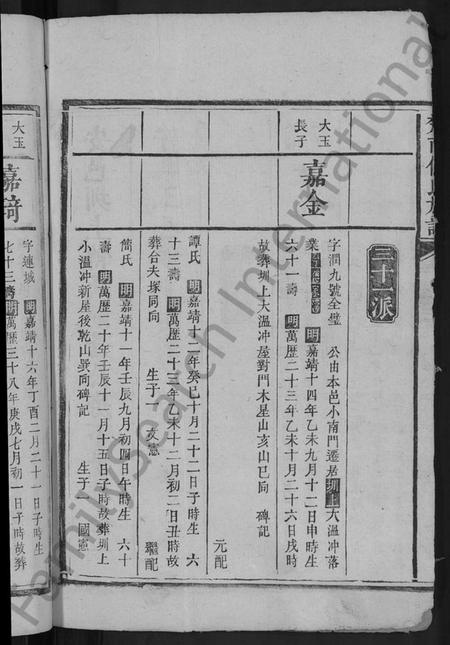 三十一派
大玉
長子
嘉金
字潤九號全璧 公由本邑小南門遷居圳上大溫冲落
業 明嘉靖十四年乙未九月十二日申時生
六十一壽 明萬歷二十三年乙未十月二十六日戌時
故葬圳上大溫冲屋對門木星山亥山巳向 碑記
元配
譚氏 明嘉靖十二年癸巳十月二十二日子時生 六
十三壽 明萬歷二十三年乙未十二月初二日丑時故
葬合夫塚同向 生子一 文憲
繼配
簡氏 明嘉靖十一年壬辰九月初四日午時生 六十
壽 明萬歷二十年壬辰十一月十五日子時故葬圳上
小溫冲新屋後乾山巽向碑記 生子一 國憲
大玉
嘉
字連城 明嘉靖十六年丁酉二月二十一日子時生
七十三壽明萬歷三十八年庚戌七月初一日子時故葬
FamilySearch International